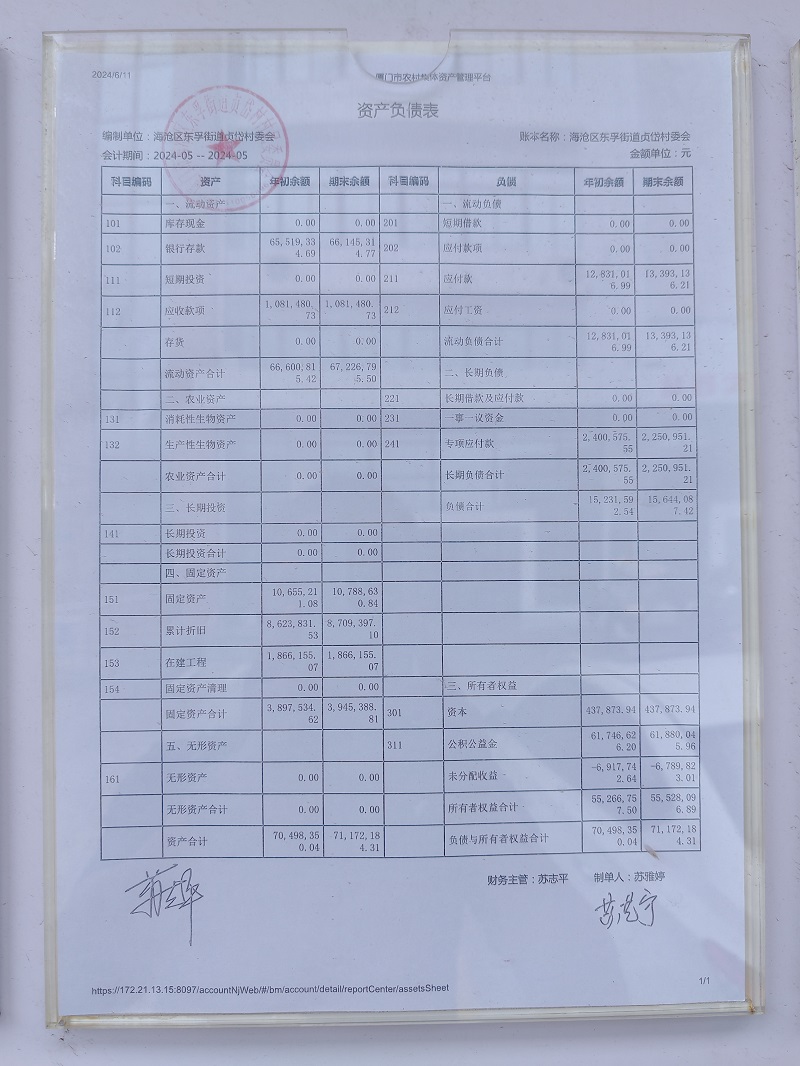 2024/6/11 厦门市农村集体资产管理平台
资产负债表
编制单位：海沧区东孚街道贞岱村委会 账本名称：海沧区东孚街道贞岱村委会
会计期间：2024-05 -- 2024-05 金额单位：元
科目编码 资产 年初余额 期末余额 科目编码 负债 年初余额 期末余额
一、流动资产 一、流动负债
101 库存现金 0.00 0.00 201 短期借款 0.00 0.00
102 银行存款 65,519,334.69 66,145,314.77 202 应付款项 0.00 0.00
111 短期投资 0.00 0.00 211 应付款 12,831,016.99 13,393,136.21
112 应收款项 1,081,480.73 1,081,480.73 212 应付工资 0.00 0.00
存货 0.00 0.00 流动负债合计 12,831,016.99 13,393,136.21
流动资产合计 66,600,815.42 67,226,795.50 二、长期负债
二、农业资产 221 长期借款及应付款 0.00 0.00
131 消耗性生物资产 0.00 0.00 231 一事一议资金 0.00 0.00
132 生产性生物资产 0.00 0.00 241 专项应付款 2,400,575.55 2,250,951.21
农业资产合计 0.00 0.00 长期负债合计 2,400,575.55 2,250,951.21
三、长期投资 负债合计 15,231,592.54 15,644,087.42
141 长期投资 0.00 0.00
长期投资合计 0.00 0.00
四、固定资产
151 固定资产 10,655,211.08 10,788,630.84
152 累计折旧 8,623,831.53 8,709,397.10
153 在建工程 1,866,155.07 1,866,155.07
154 固定资产清理 0.00 0.00 三、所有者权益
固定资产合计 3,897,534.62 3,945,388.81 301 资本 437,873.94 437,873.94
五、无形资产 311 公积公益金 61,746,626.20 61,880,045.96
161 无形资产 0.00 0.00 未分配收益 -6,917,742.64 -6,789,823.01
无形资产合计 0.00 0.00 所有者权益合计 55,266,757.50 55,528,096.89
资产合计 70,498,350.04 71,172,184.31 负债与所有者权益合计 70,498,350.04 71,172,184.31
财务主管：苏志平 制单人：苏雅婷
https://172.21.13.15:8097/accountNjWeb/#/bm/account/detail/reportCenter/assetsSheet 1/1